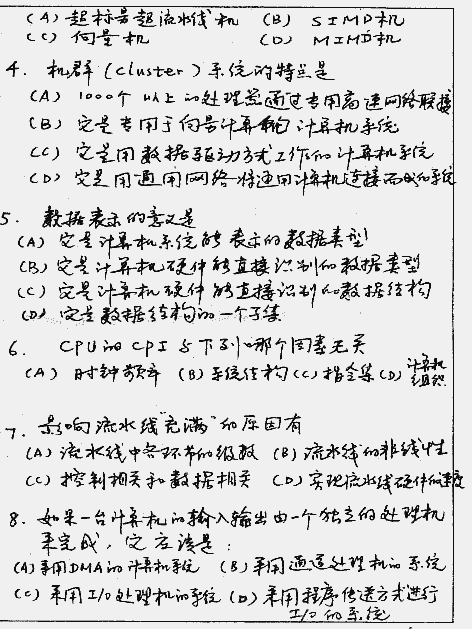 (A) 超标量超流水线机 (B) SIMD机
(C) 向量机 (D) MIMD机
4. 机群(cluster)系统的特点是
(A) 1000个以上的处理器通过专用高速网络联接
(B) 它是专用于向量计算的计算机系统
(C) 它是用数据驱动方式工作的计算机系统
(D) 它是用通用网络将通用计算机连接而成的系统
5. 数据表示的意义是
(A) 它是计算机系统能表示的数据类型
(B) 它是计算机硬件能直接识别的数据类型
(C) 它是计算机硬件能直接识别的数据结构
(D) 它是数据结构的一个子集
6. CPU的CPI与下列哪个因素无关
(A) 时钟频率 (B) 系统结构 (C) 指令集 (D) 计算机组织
7. 影响流水线"充满"的原因有
(A) 流水线中各环节的级数 (B) 流水线的非线性
(C) 控制相关和数据相关 (D) 实现流水线硬件的速度
8. 如果一台计算机的输入输出由一个独立的处理机
来完成,它应该是:
(A) 采用DMA的计算机系统 (B) 采用通道处理机的系统
(C) 采用I/O处理机的系统 (D) 采用程序传送方式进行
I/O的系统